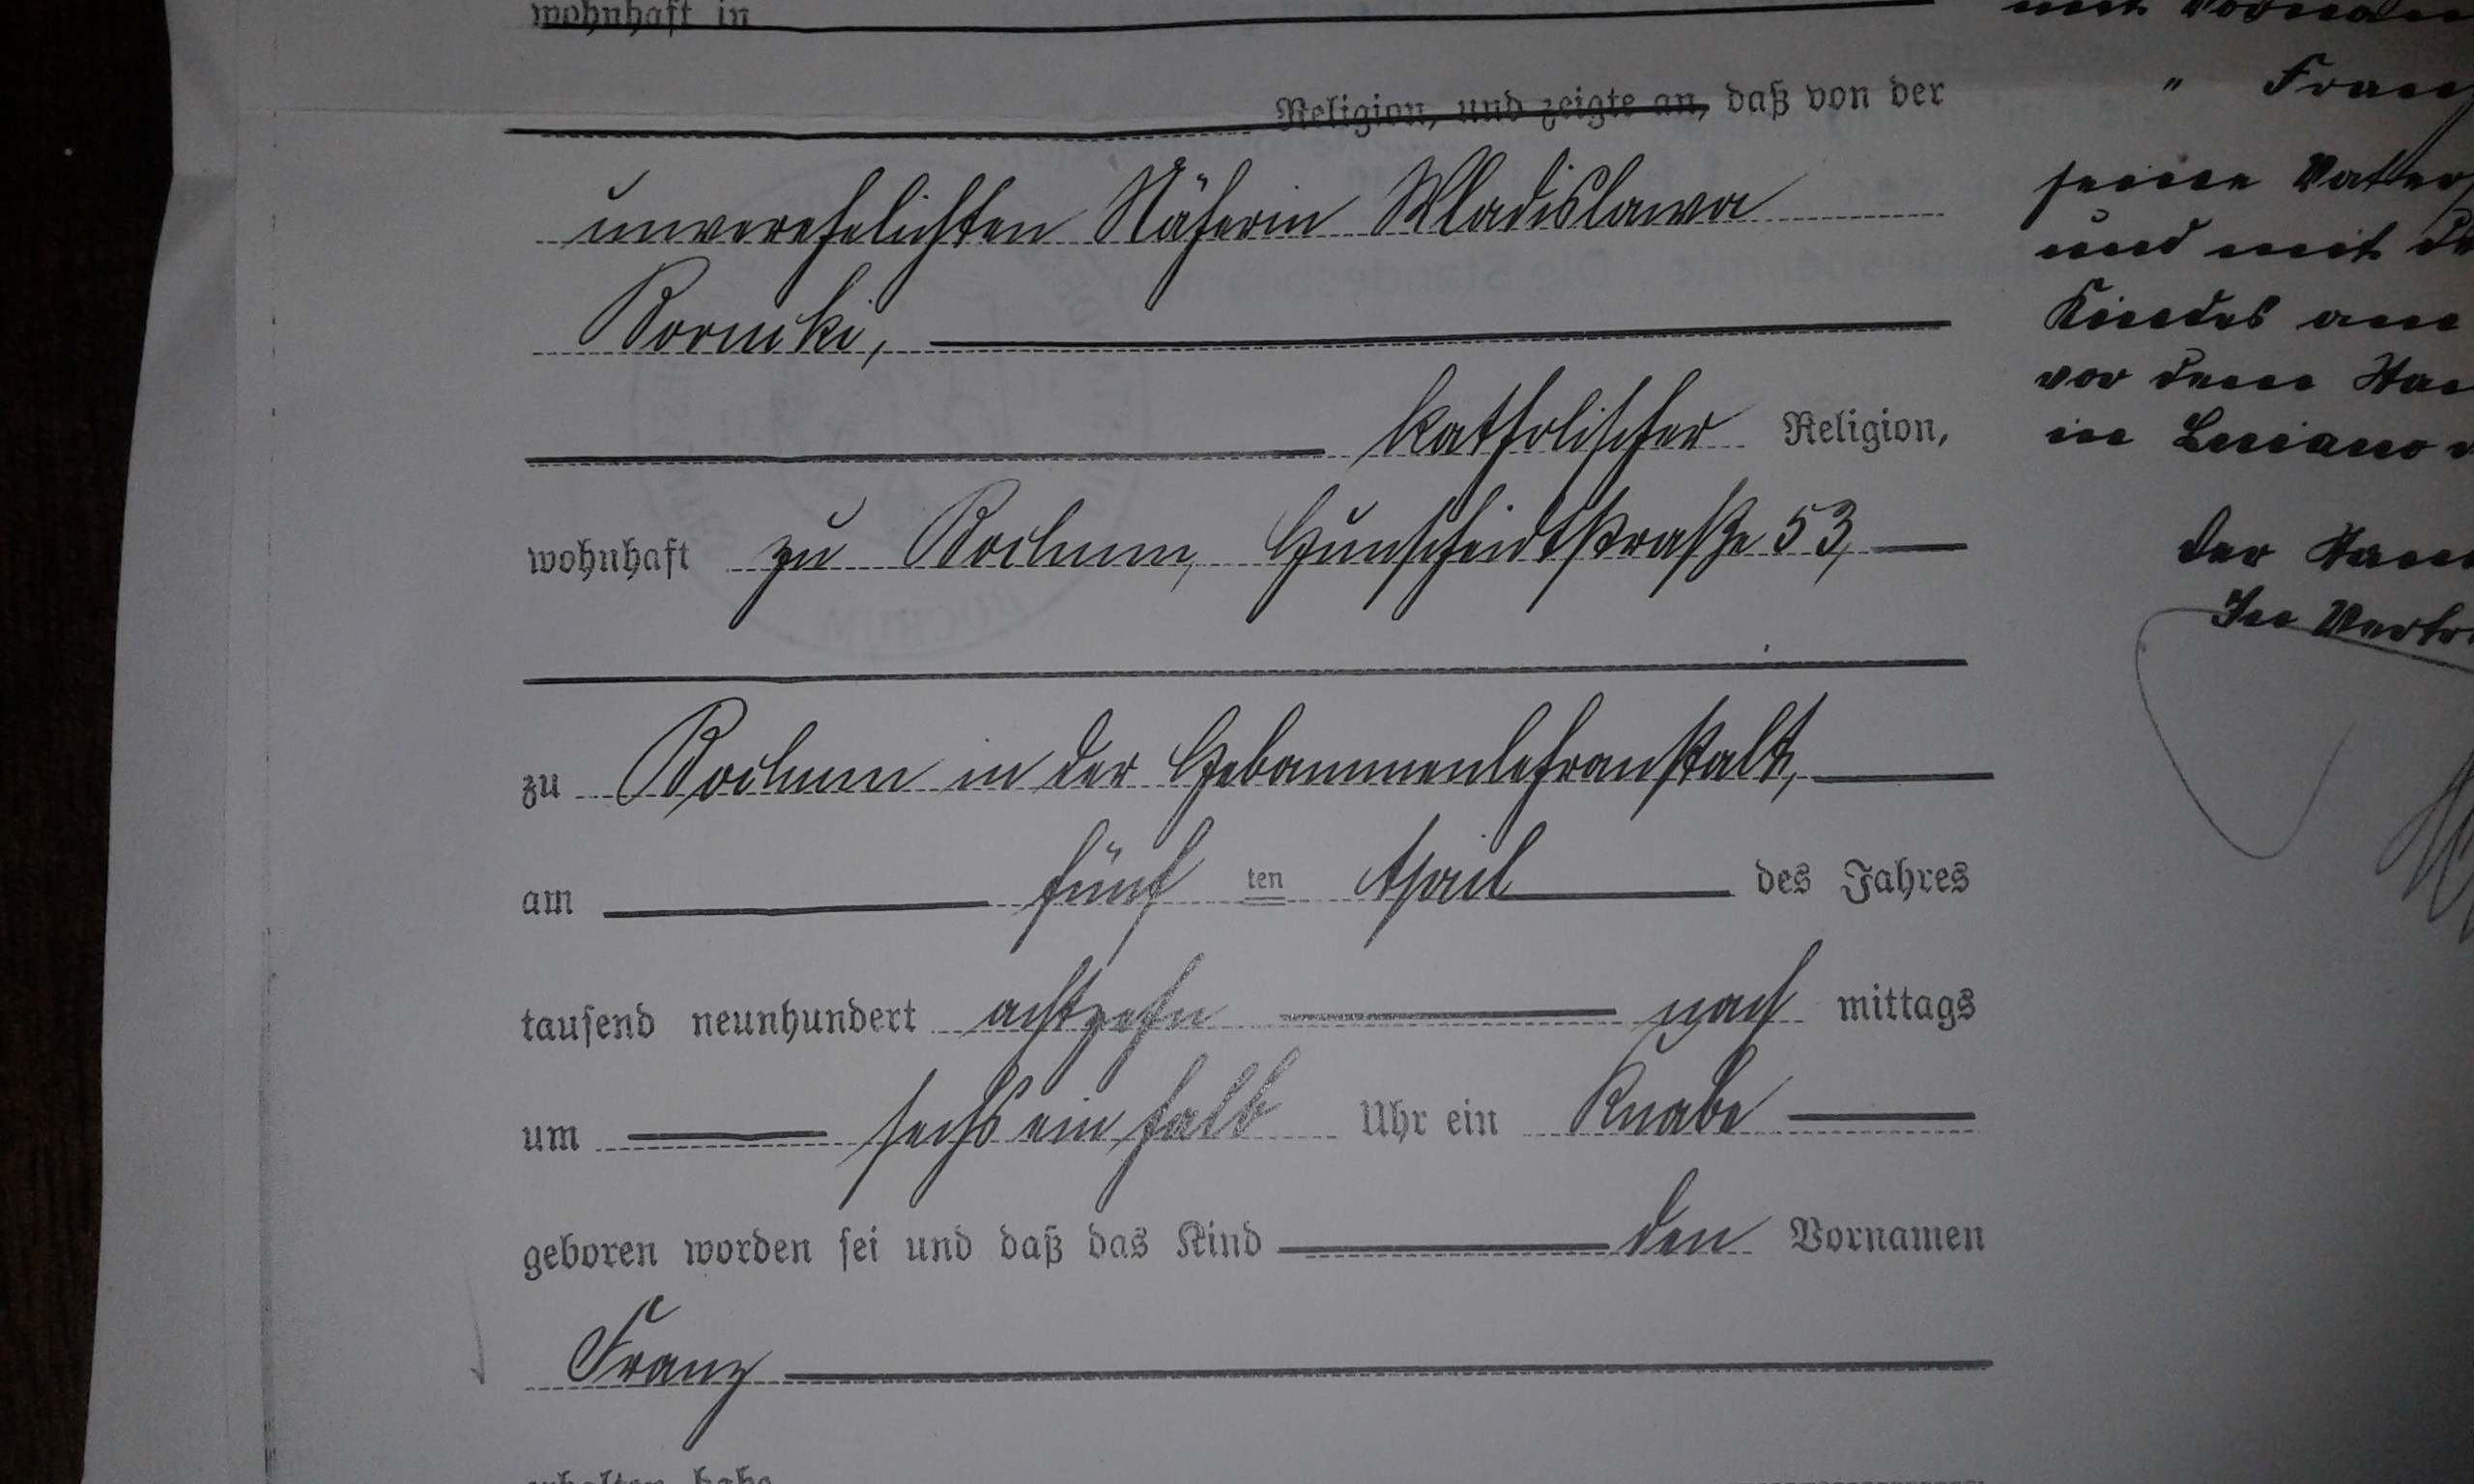 wohnhaft in
Religion, und zeigte an, daß von der
unverehelichten Näherin Wladislawa
katholischer Religion,
wohnhaft zu Bochum, Hunscheidtstraße 53,
zu Bochum in der Hebammenlehranstalt,
am fünf ten April des Jahres
tausend neunhundert achtzehn nach mittags
um sechs ein halb Uhr ein Knabe
geboren worden sei und daß das Kind den Vornamen
Franz
erhalten habe
mit
" Fran
seine Vater
und mit
Kindes
vor dem
in
der
In Vertr